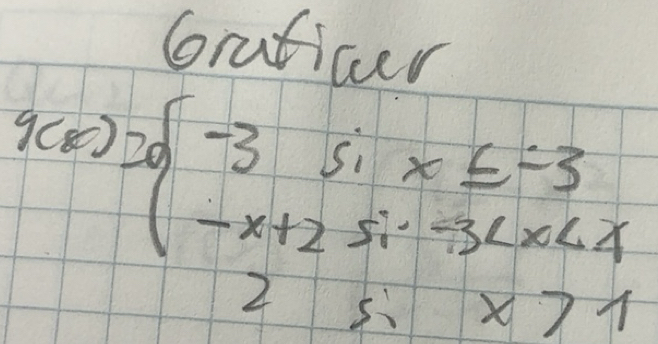 Graficar
g(x) = { -3 si x ≤ -3
-x+2 si -3<x<1
2 si x > 1